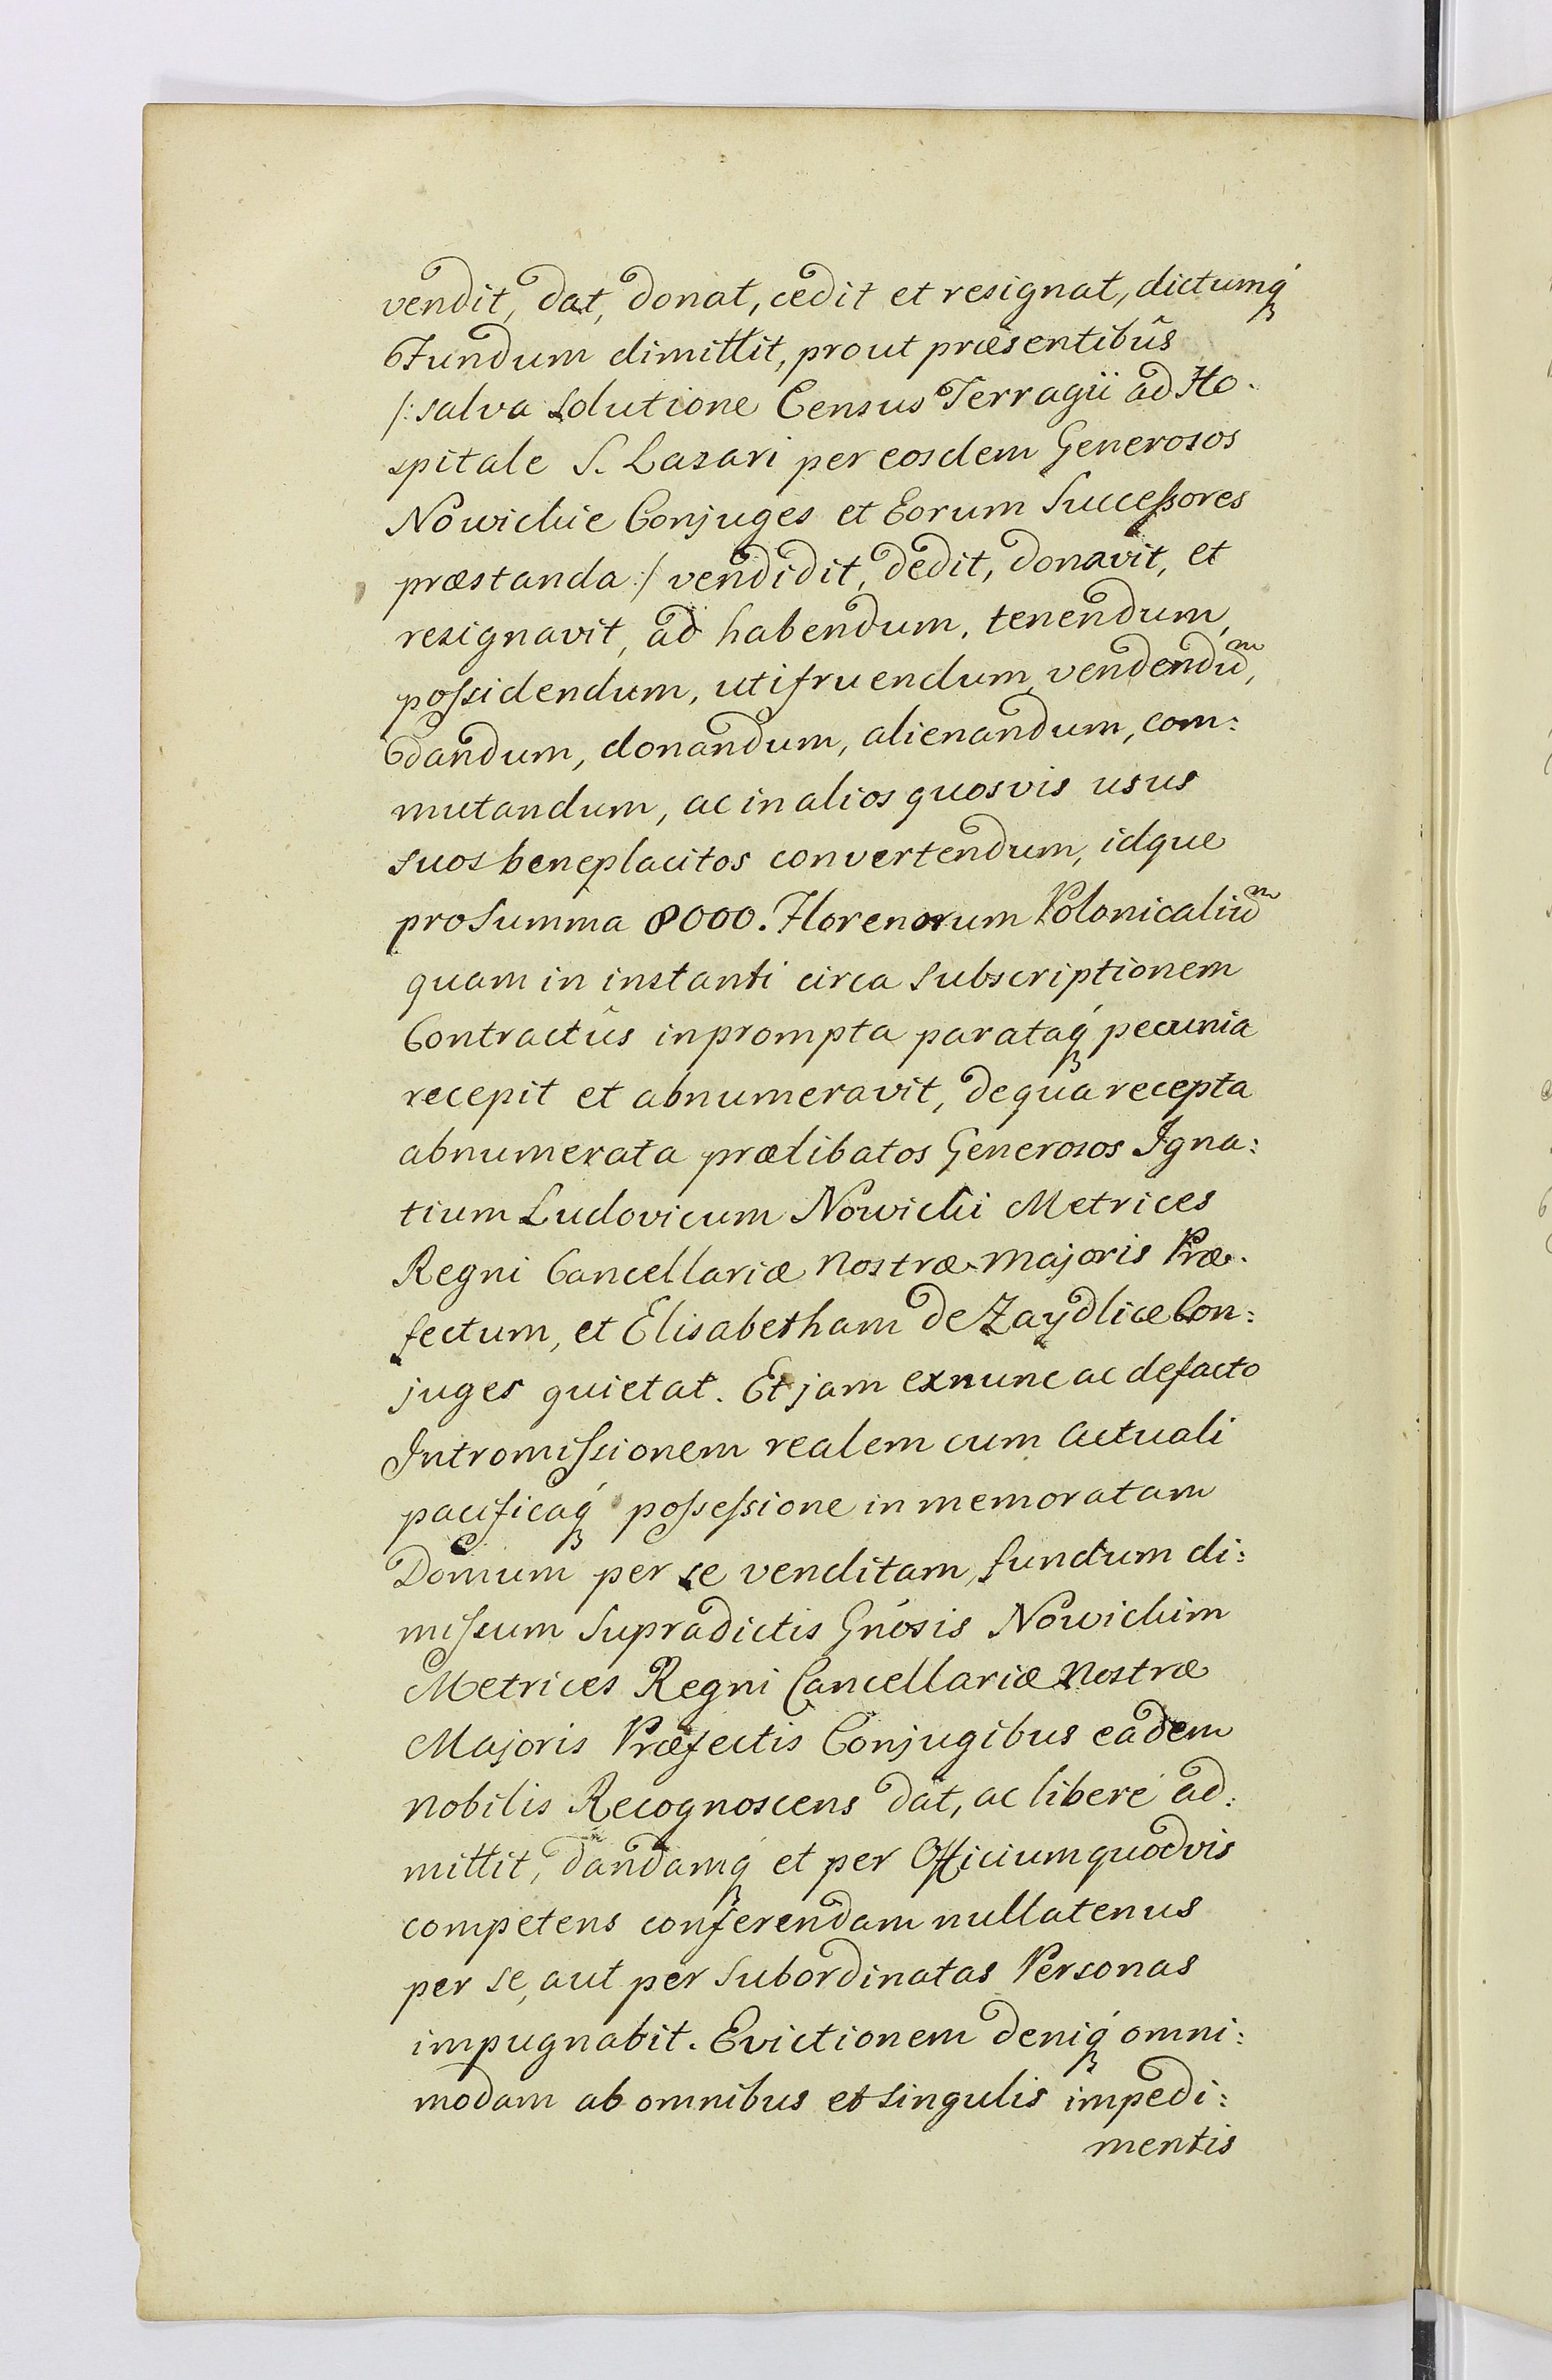 vendit, dat, donat, cedit et resignat, dictumq́
Fundum dimittit, prout præsentibus
/: salva Solutione Census Terragii ad Ho-
spitale S. Lazari per eosdem Generosos
Nowickie Conjuges et Eorum Successores
præstanda :/ vendidit, dedit, donavit, et
resignavit, ad habendum, tenendum,
possidendum, utifruendum, vendendum,
dandum, donandum, alienandum, com:
mutandum, ac in alios quosvis usus
suos beneplacitos convertendum, idque
pro Summa 8000. Florenorum Polonicalium
quam in instanti circa subscriptionem
Contractûs in prompta parataq́ pecunia
recepit et abnumeravit, de qua recepta
abnumerata prælibatos Generosos Igna:
tium Ludovicum Nowicki Metrices
Regni Cancellariæ Nostræ Majoris Præ-
fectum, et Elisabetham de Zaydlice Con:
juges quietat. Et jam exnunc ac defacto
Intromissionem realem cum actuali
pacificaq́ possessione in memoratam
Domum per se venditam, fundum di:
missum Supradictis Gnosis Nowickim
Metrices Regni Cancellariæ Nostræ
Majoris Præfectis Conjugibus eadem
Nobilis Recognoscens dat, ac liberé ad:
mittit, dandamq́ et per Officium quodvis
competens conferendam nullatenus
per se, aut per Subordinatas Personas
impugnabit. Evictionem deniq́ omni:
modam ab omnibus et singulis impedi:
mentis